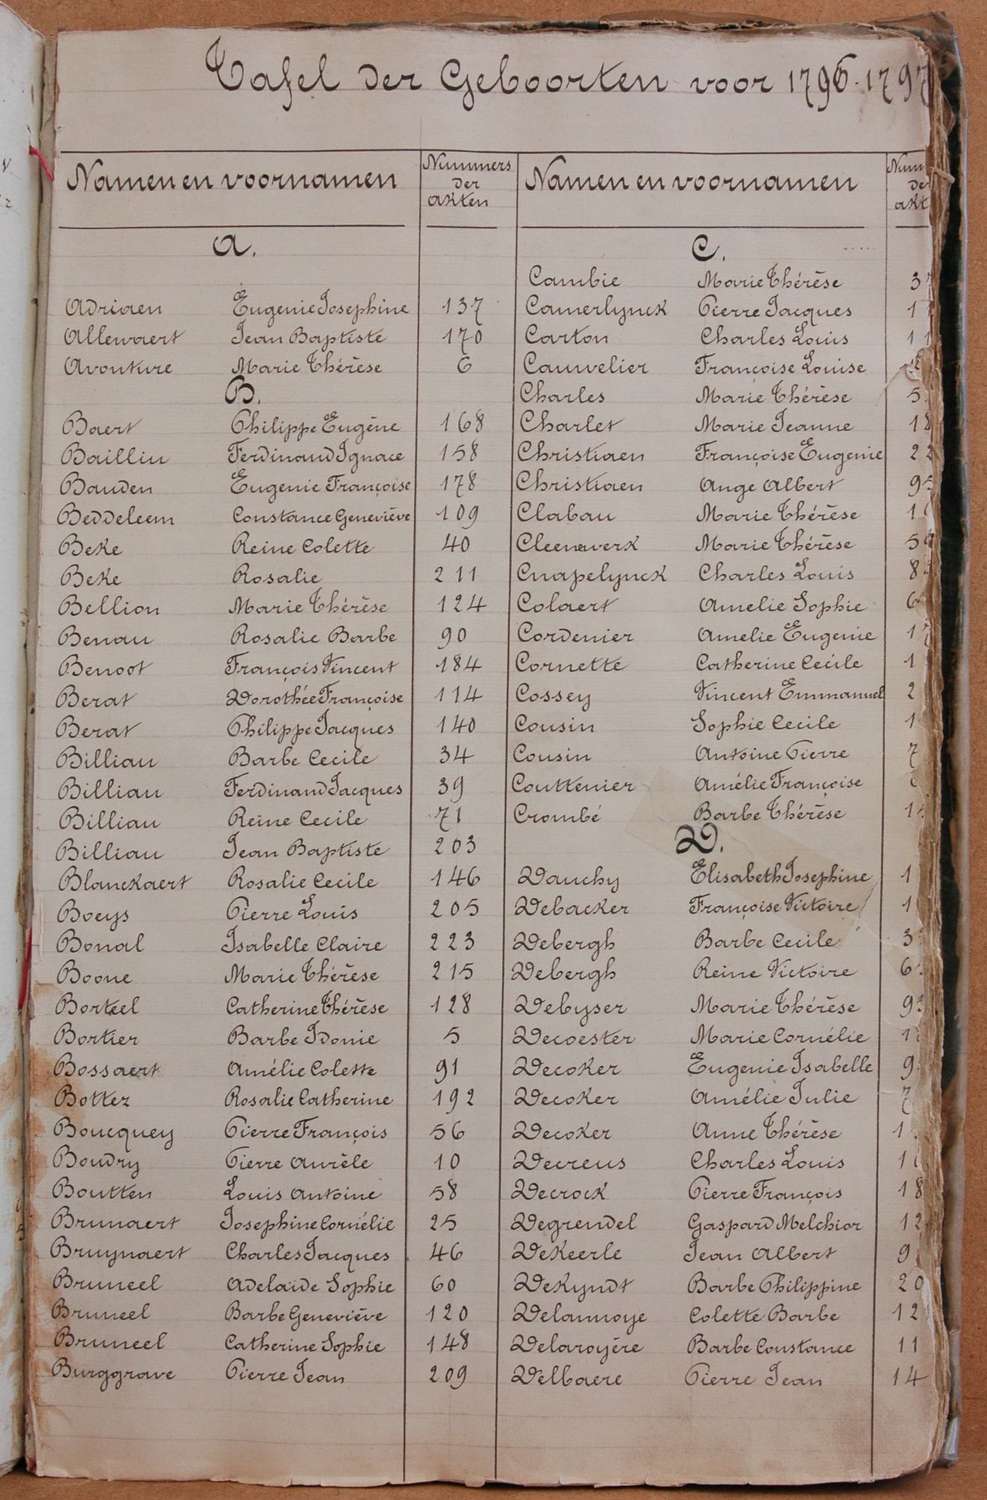 Tafel der Geboorten voor 1796-1797
Namen en voornamen
Nummers der akten
A.
Adriaen Eugenie Josephine 137
Allewaert Jean Baptiste 170
Avonture Marie Thérèse 6
B.
Baert Philippe Eugène 168
Bailliu Ferdinand Ignace 158
Bauden Eugenie Françoise 178
Beddeleem Constance Geneviève 109
Beke Reine Colette 40
Beke Rosalie 211
Bellion Marie Thérèse 124
Benau Rosalie Barbe 90
Benoot François Vincent 184
Berat Dorothée Françoise 114
Berat Philippe Jacques 140
Billiau Barbe Cecile 34
Billiau Ferdinand Jacques 39
Billiau Reine Cecile 71
Billiau Jean Baptiste 203
Blanckaert Rosalie Cecile 146
Boeys Pierre Louis 205
Bonal Isabelle Claire 223
Boone Marie Thérèse 215
Borteel Catherine Thérèse 128
Bortier Barbe Idonie 5
Bossaert Amélie Colette 91
Bottez Rosalie Catherine 192
Boucquey Pierre François 56
Boudry Pierre Aurèle 10
Boutten Louis Antoine 58
Brunaert Josephine Cornélie 25
Bruynaert Charles Jacques 46
Bruneel Adelaide Sophie 60
Bruneel Barbe Geneviève 120
Bruneel Catherine Sophie 148
Burggrave Pierre Jean 209
Namen en voornamen
Numm
der
akt
C.
Cambie Marie Thérèse 3
Camerlynck Pierre Jacques 1
Carton Charles Louis 11
Cauvelier Françoise Louise
Charles Marie Thérèse 5
Charlet Marie Jeanne 18
Christiaen Françoise Eugenie 22
Christiaen Ange Albert 9
Clabau Marie Thérèse 1
Cleenewerk Marie Thérèse 59
Cnapelynck Charles Louis 8
Colaert Amelie Sophie 6
Cordenier Amelie Eugenie 1
Cornette Catherine Cecile 1
Cossey Vincent Emmanuel 2
Cousin Sophie Cecile 1
Cousin Antoine Pierre 7
Couttenier Amélie Françoise
Crombé Barbe Thérèse 1
D.
Dauchy Elisabeth Josephine 1
Debacker Françoise Victoire 1
Debergh Barbe Cecile 3
Debergh Reine Victoire 6
Debyser Marie Thérèse 9
Decoester Marie Cornélie 1
Decoker Eugenie Isabelle 9
Decoker Amélie Julie 7
Decoker Anne Thérèse 1
Decreus Charles Louis 1
Decrock Pierre François 18
Degrendel Gaspard Melchior 12
Dekeerle Jean Albert 9
Dekyndt Barbe Philippine 20
Delannoye Colette Barbe 12
Delaroyère Barbe Constance 11
Delbaere Pierre Jean 14